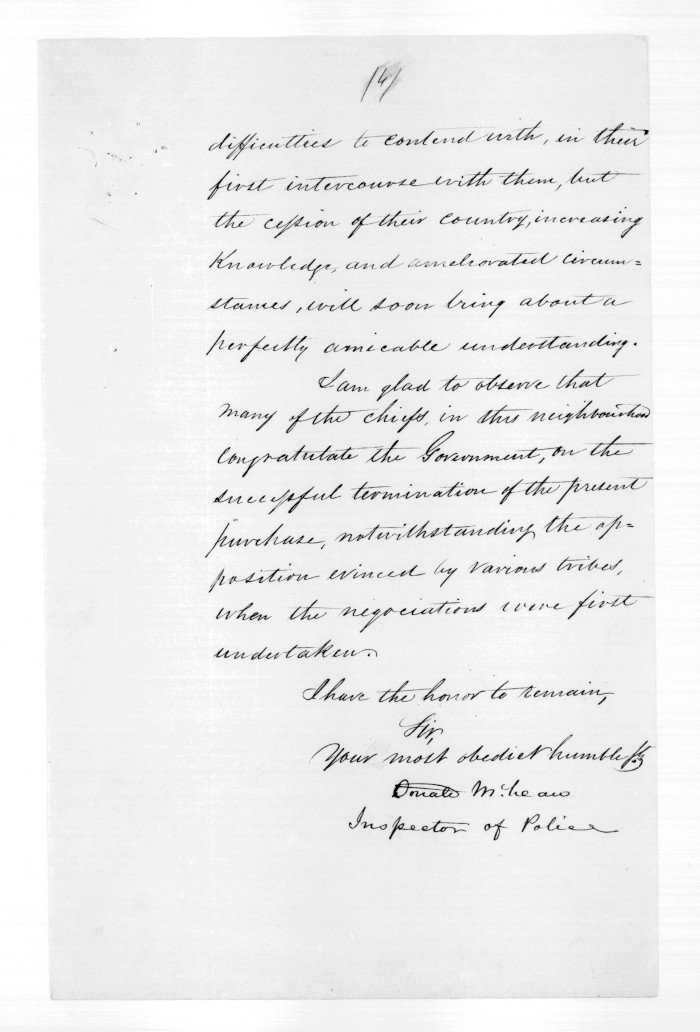 /4/
difficulties to contend with, in their
first intercourse with them, but
the cession of their country, increasing
Knowledge, and ameliorated circum=
stances, will soon bring about a
perfectly amicable understanding.
I am glad to observe that
many of the chiefs, in this neighbourhood
congratulate the Government, on the
successful termination of the present
purchase, notwithstanding the op=
position evinced by various tribes,
when the negociations were first
undertaken.
I have the honor to remain,
Sir,
Your most obedient humble St
Donald McLean
Inspector of Police